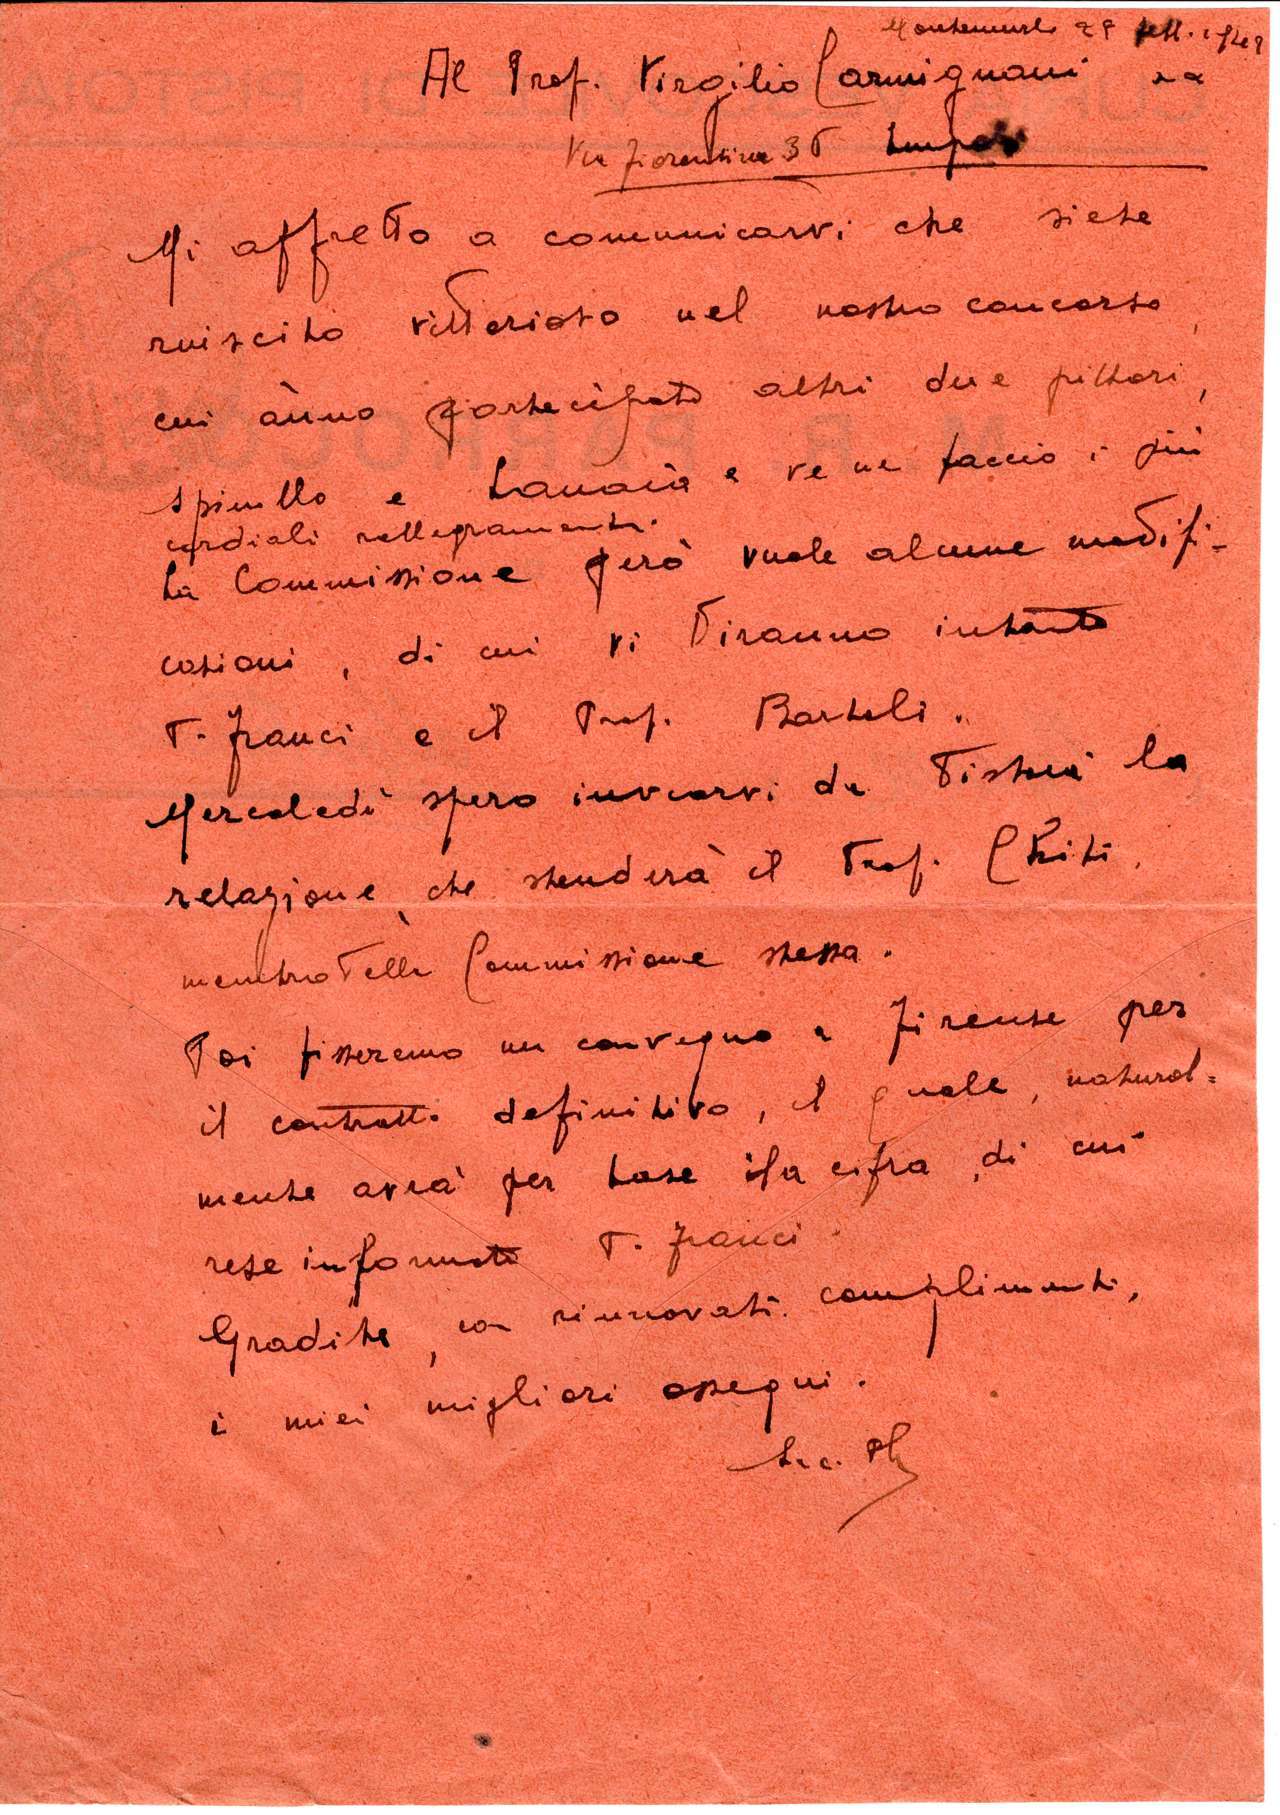 Montemurlo 29 sett. 1942
Al Prof. Virgilio Carmignani
Via fiorentina 38 Empoli
Mi affretto a comunicarvi che siete
riuscito vittorioso nel nostro concorso,
cui ànno partecipato altri due pittori,
Spinillo e e ve ne faccio i più
cordiali rallegramenti.
La Commissione però vuole alcune modifi-
cazioni, di cui vi diranno intanto
D. Franci e il Prof. Bartoli.
Mercoledì spero inviarvi da Pistoia la
relazione, che stenderà il Prof. Chiti,
membro della Commissione stessa.
Poi fisseremo un convegno a Firenze per
il contratto definitivo, il quale, natural=
mente avrà per base la cifra, di cui
rese informato D. Franci.
Gradite, con rinnovati complimenti,
i miei migliori ossequi.
CURIA VESCOVILE DI PISTOIA
M. R. PARROCO